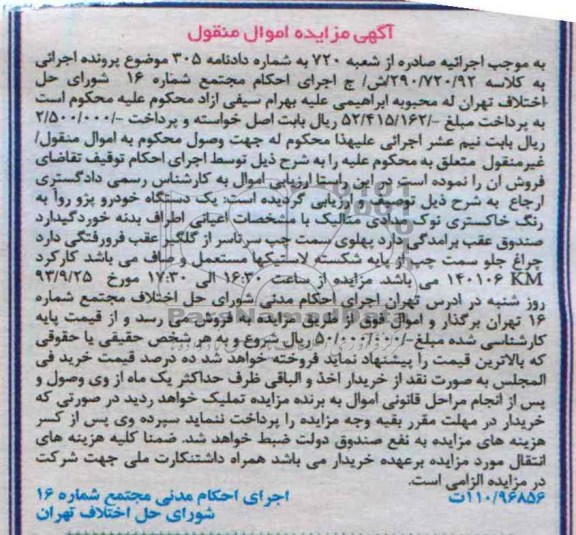 آگهی مزایده اموال منقول
به موجب اجرائیه صادره از شعبه ۷۲۰ به شماره دادنامه ۳۰۵ موضوع پرونده اجرائی
به کلاسه ۲۹۰/۷۲۰/۹۲/ش/ ج اجرای احکام مجتمع شماره ۱۶ شورای حل
اختلاف تهران له محبوبه ابراهیمی علیه بهرام سیفی ازاد محکوم علیه محکوم است
به پرداخت مبلغ -/۵۲/۴۱۵/۱۶۲ ریال بابت اصل خواسته و پرداخت -/۲/۵۰۰/۰۰۰
ریال بابت نیم عشر اجرائی علیهذا محکوم له جهت وصول محکوم به اموال منقول/
غیرمنقول متعلق به محکوم علیه را به شرح ذیل توسط اجرای احکام توقیف تقاضای
فروش ان را نموده است در این راستا ارزیابی اموال به کارشناس رسمی دادگستری
ارجاع به شرح ذیل توصیف و ارزیابی گردیده است: یک دستگاه خودرو پژو روآ به
رنگ خاکستری نوک مدادی متالیک با مشخصات اعیانی اطراف بدنه خوردگیدارد
صندوق عقب برامدگی دارد پهلوی سمت چپ سرتاسر از گلگیر عقب فرورفتگی دارد
چراغ جلو سمت چپ از پایه شکسته لاستیکها مستعمل و صاف می باشد کارکرد
۱۴۰۱۰۶ KM می باشد. مزایده از ساعت ۱۶:۳۰ الی ۱۷:۳۰ مورخ ۹۳/۹/۲۵
روز شنبه در ادرس تهران اجرای احکام مدنی شورای حل اختلاف مجتمع شماره
۱۶ تهران برگذار و اموال فوق از طریق مزایده به فروش می رسد و از قیمت پایه
کارشناسی شده مبلغ-/۵۰/۰۰۰/۰۰۰ ریال شروع و به هر شخص حقیقی یا حقوقی
که بالاترین قیمت را پیشنهاد نماید فروخته خواهد شد ده درصد قیمت خرید فی
المجلس به صورت نقد از خریدار اخذ و الباقی ظرف حداکثر یک ماه از وی وصول و
پس از انجام مراحل قانونی اموال به برنده مزایده تملیک خواهد ردید در صورتی که
خریدار در مهلت مقرر بقیه وجه مزایده را پرداخت ننماید سپرده وی پس از کسر
هزینه های مزایده به نفع صندوق دولت ضبط خواهد شد. ضمنا کلیه هزینه های
انتقال مورد مزایده برعهده خریدار می باشد همراه داشتنکارت ملی جهت شرکت
در مزایده الزامی است.
۱۱۰/۹۶۸۵۶ت
اجرای احکام مدنی مجتمع شماره ۱۶
شورای حل اختلاف تهران